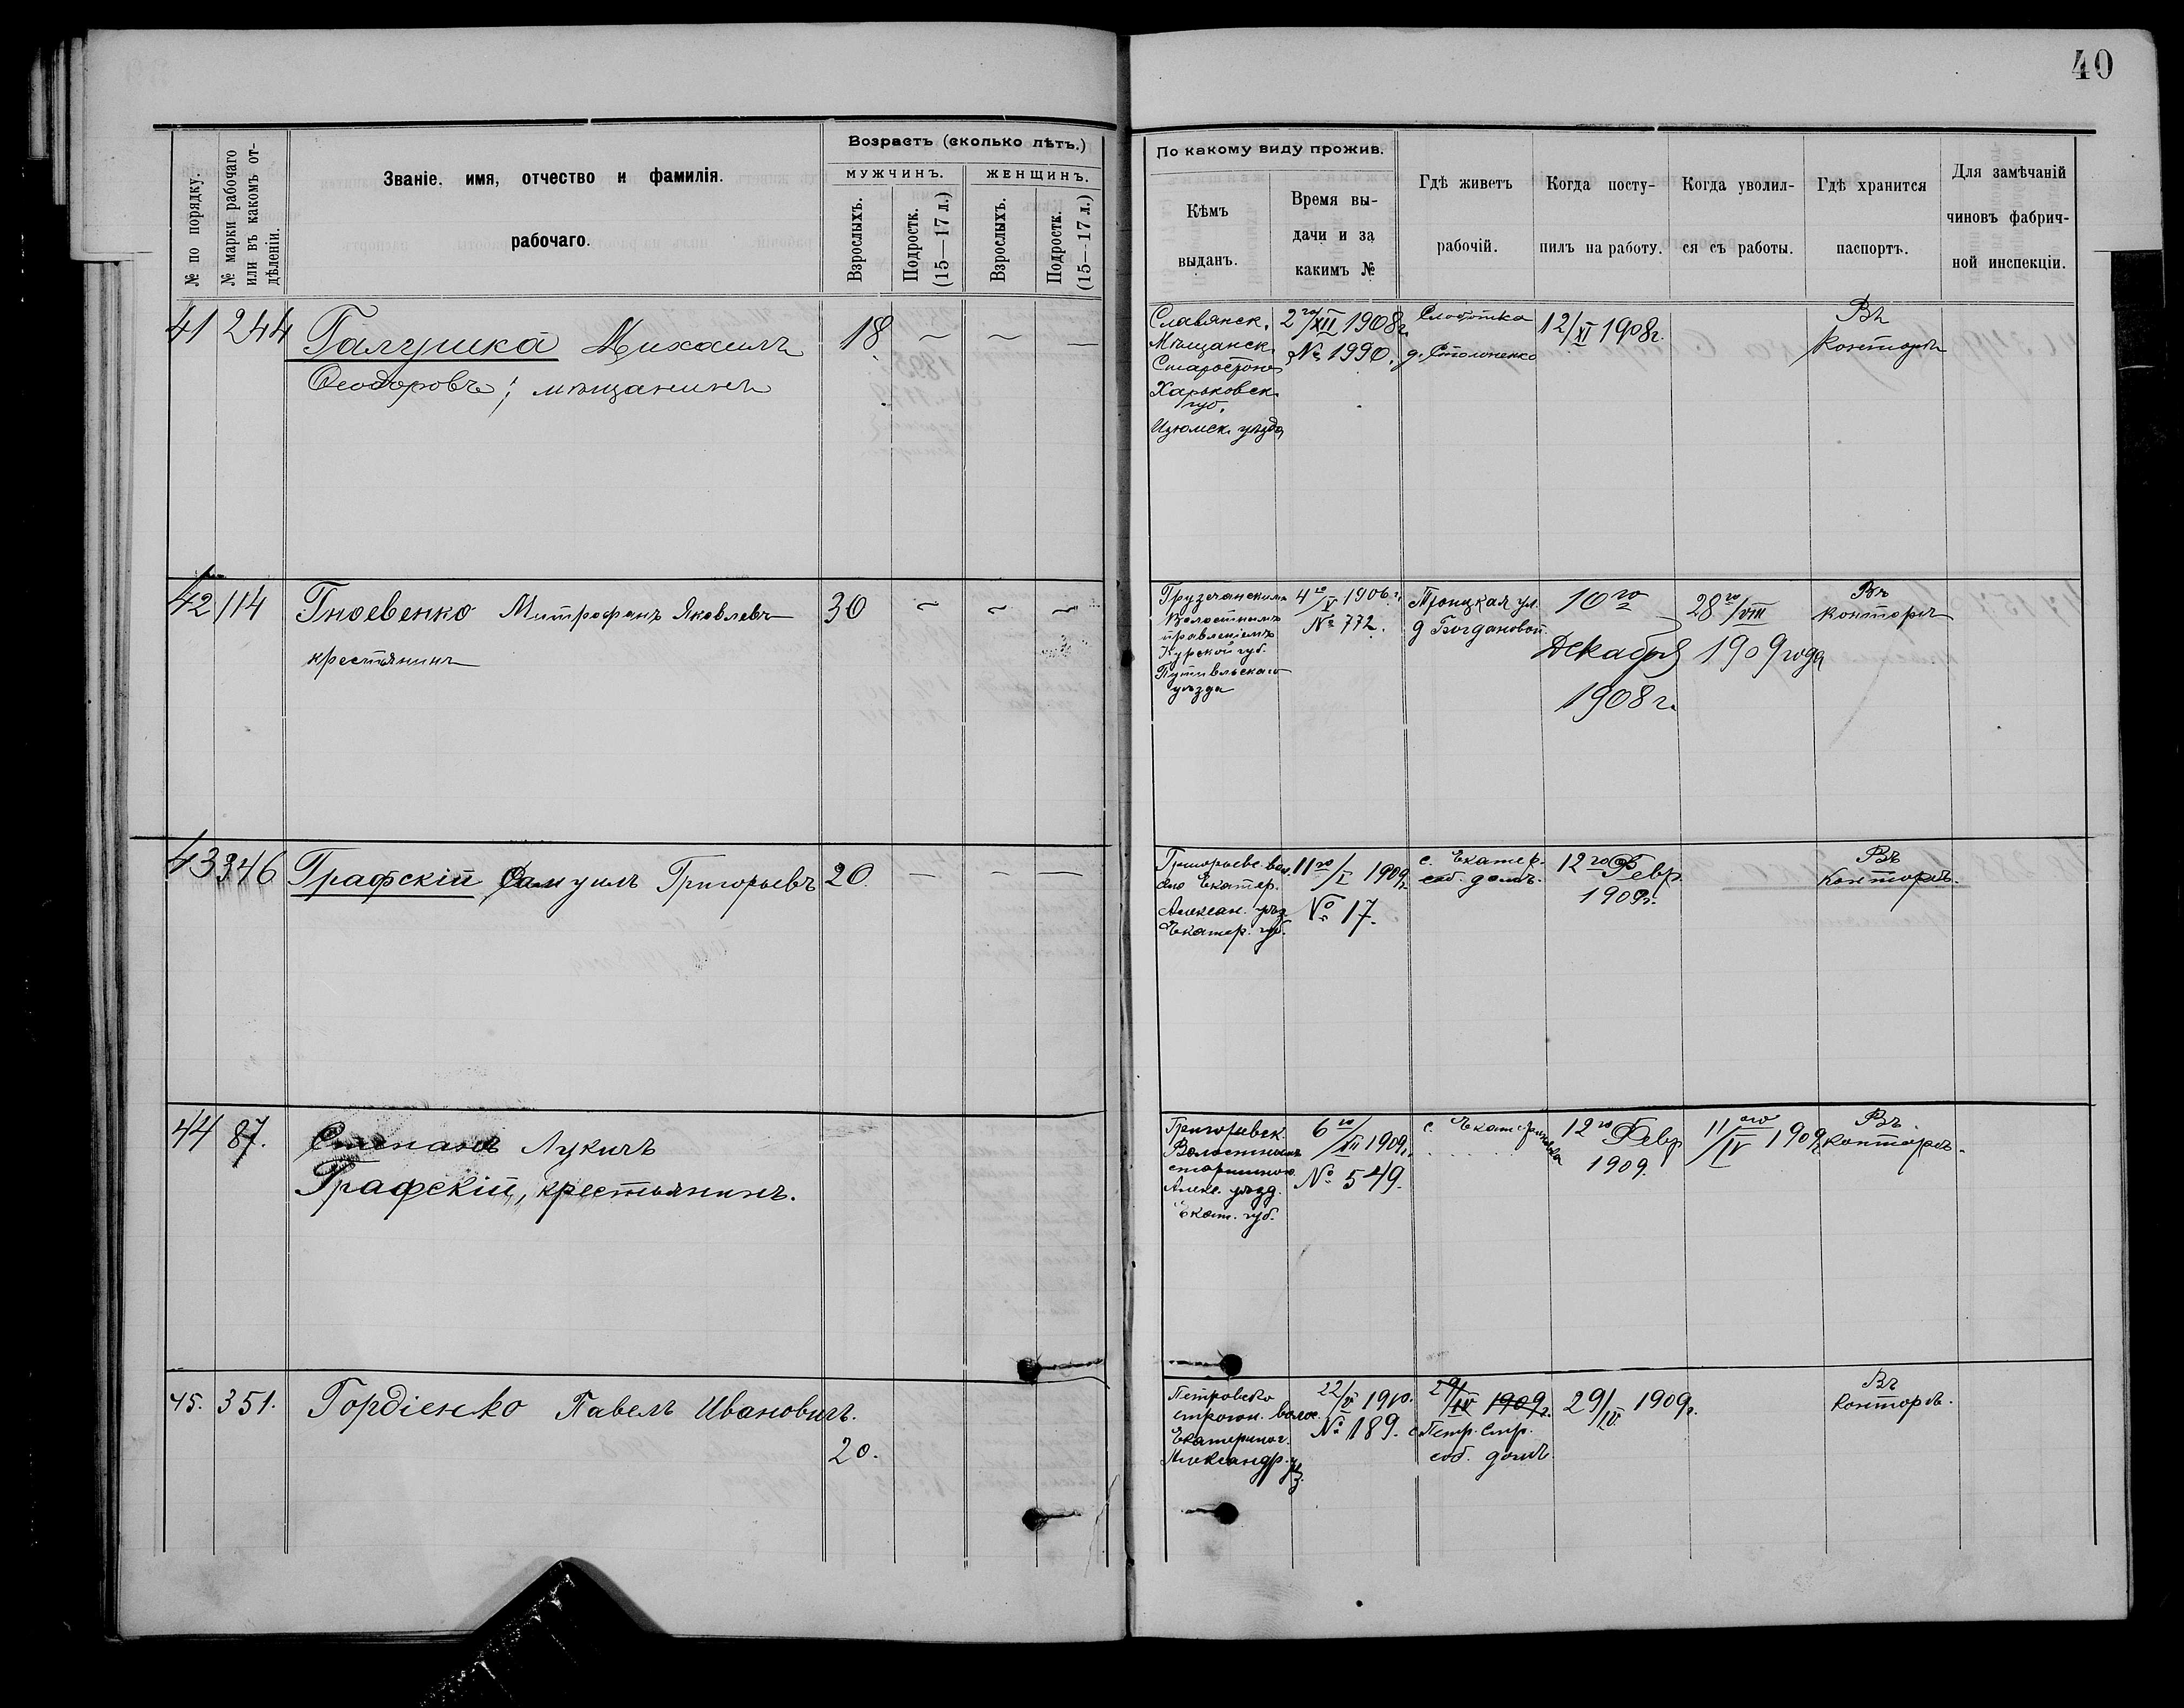 40
№ по порядку.
№ марки рабочаго или въ какомъ отдѣленіи.
Званіе, имя, отчество и фамилія рабочаго.
Возрастъ (сколько лѣтъ.)
МУЖЧИНЪ.
ЖЕНЩИНЪ.
Взрослыхъ.
Подростк. (15—17 л.)
Взрослыхъ.
Подростк. (15—17 л.)
По какому виду прожив.
Кѣмъ выданъ.
Время выдачи и за какимъ №
Гдѣ живетъ рабочій.
Когда поступилъ на работу.
Когда уволился съ работы.
Гдѣ хранится паспортъ.
Для замѣчаній чиновъ фабричной инспекціи.
41 244 Галушка Михаилъ 18 — — —
Ѳеодоровъ; мѣщанинъ
Славянск.
Мѣщанск.
Старостою
Харьковск.
губ.
Изюмск. уѣзда
2го/XII 1908г.
№ 1990.
Слободка
д. Столоненко
12/XI 1908г.
Въ
Конторѣ
42 114 Гноевенко Митрофанъ Яковлевъ 30 — — —
крестьянинъ
Грузчанскимъ
Волостнымъ
правленіемъ
Курской губ.
Путивльскаго
уѣзда
4го/V 1906 г.
№ 772.
Троицкая ул.
д Богдановой.
10го
Декабря
1908 г.
28го/VIII
1909 года
Въ
конторѣ
43 346 Графскій Самуилъ Григорьевъ 20. — — —
Григорьевс. вол.
Екатер.
Алексан. уѣз.
Екатер. губ.
11го/I 1909г.
№ 17.
с. Екатер.
соб. домъ.
12го Февр.
1909г.
Въ
Конторѣ.
44 87. Степанъ Лукичъ
Графскій, крестьянинъ.
Григорьевск.
Волостнымъ
старшиною
Алекс. уѣзд.
Екат. губ.
6го/XII 1909г.
№ 549.
с. Екатериновка
12го Февр
1909.
11ого/IV 1909г.
Въ
конторѣ.
45. 351. Гордіенко Павелъ Ивановичъ.
20.
Петровско
волос.
Екатериног.
Александр. уѣз.
22/IV 1910.
№ 189.
29/IV 1909г.
с Петр. Стр.
соб. домъ.
29/IV 1909г.
Въ
Конторѣ.